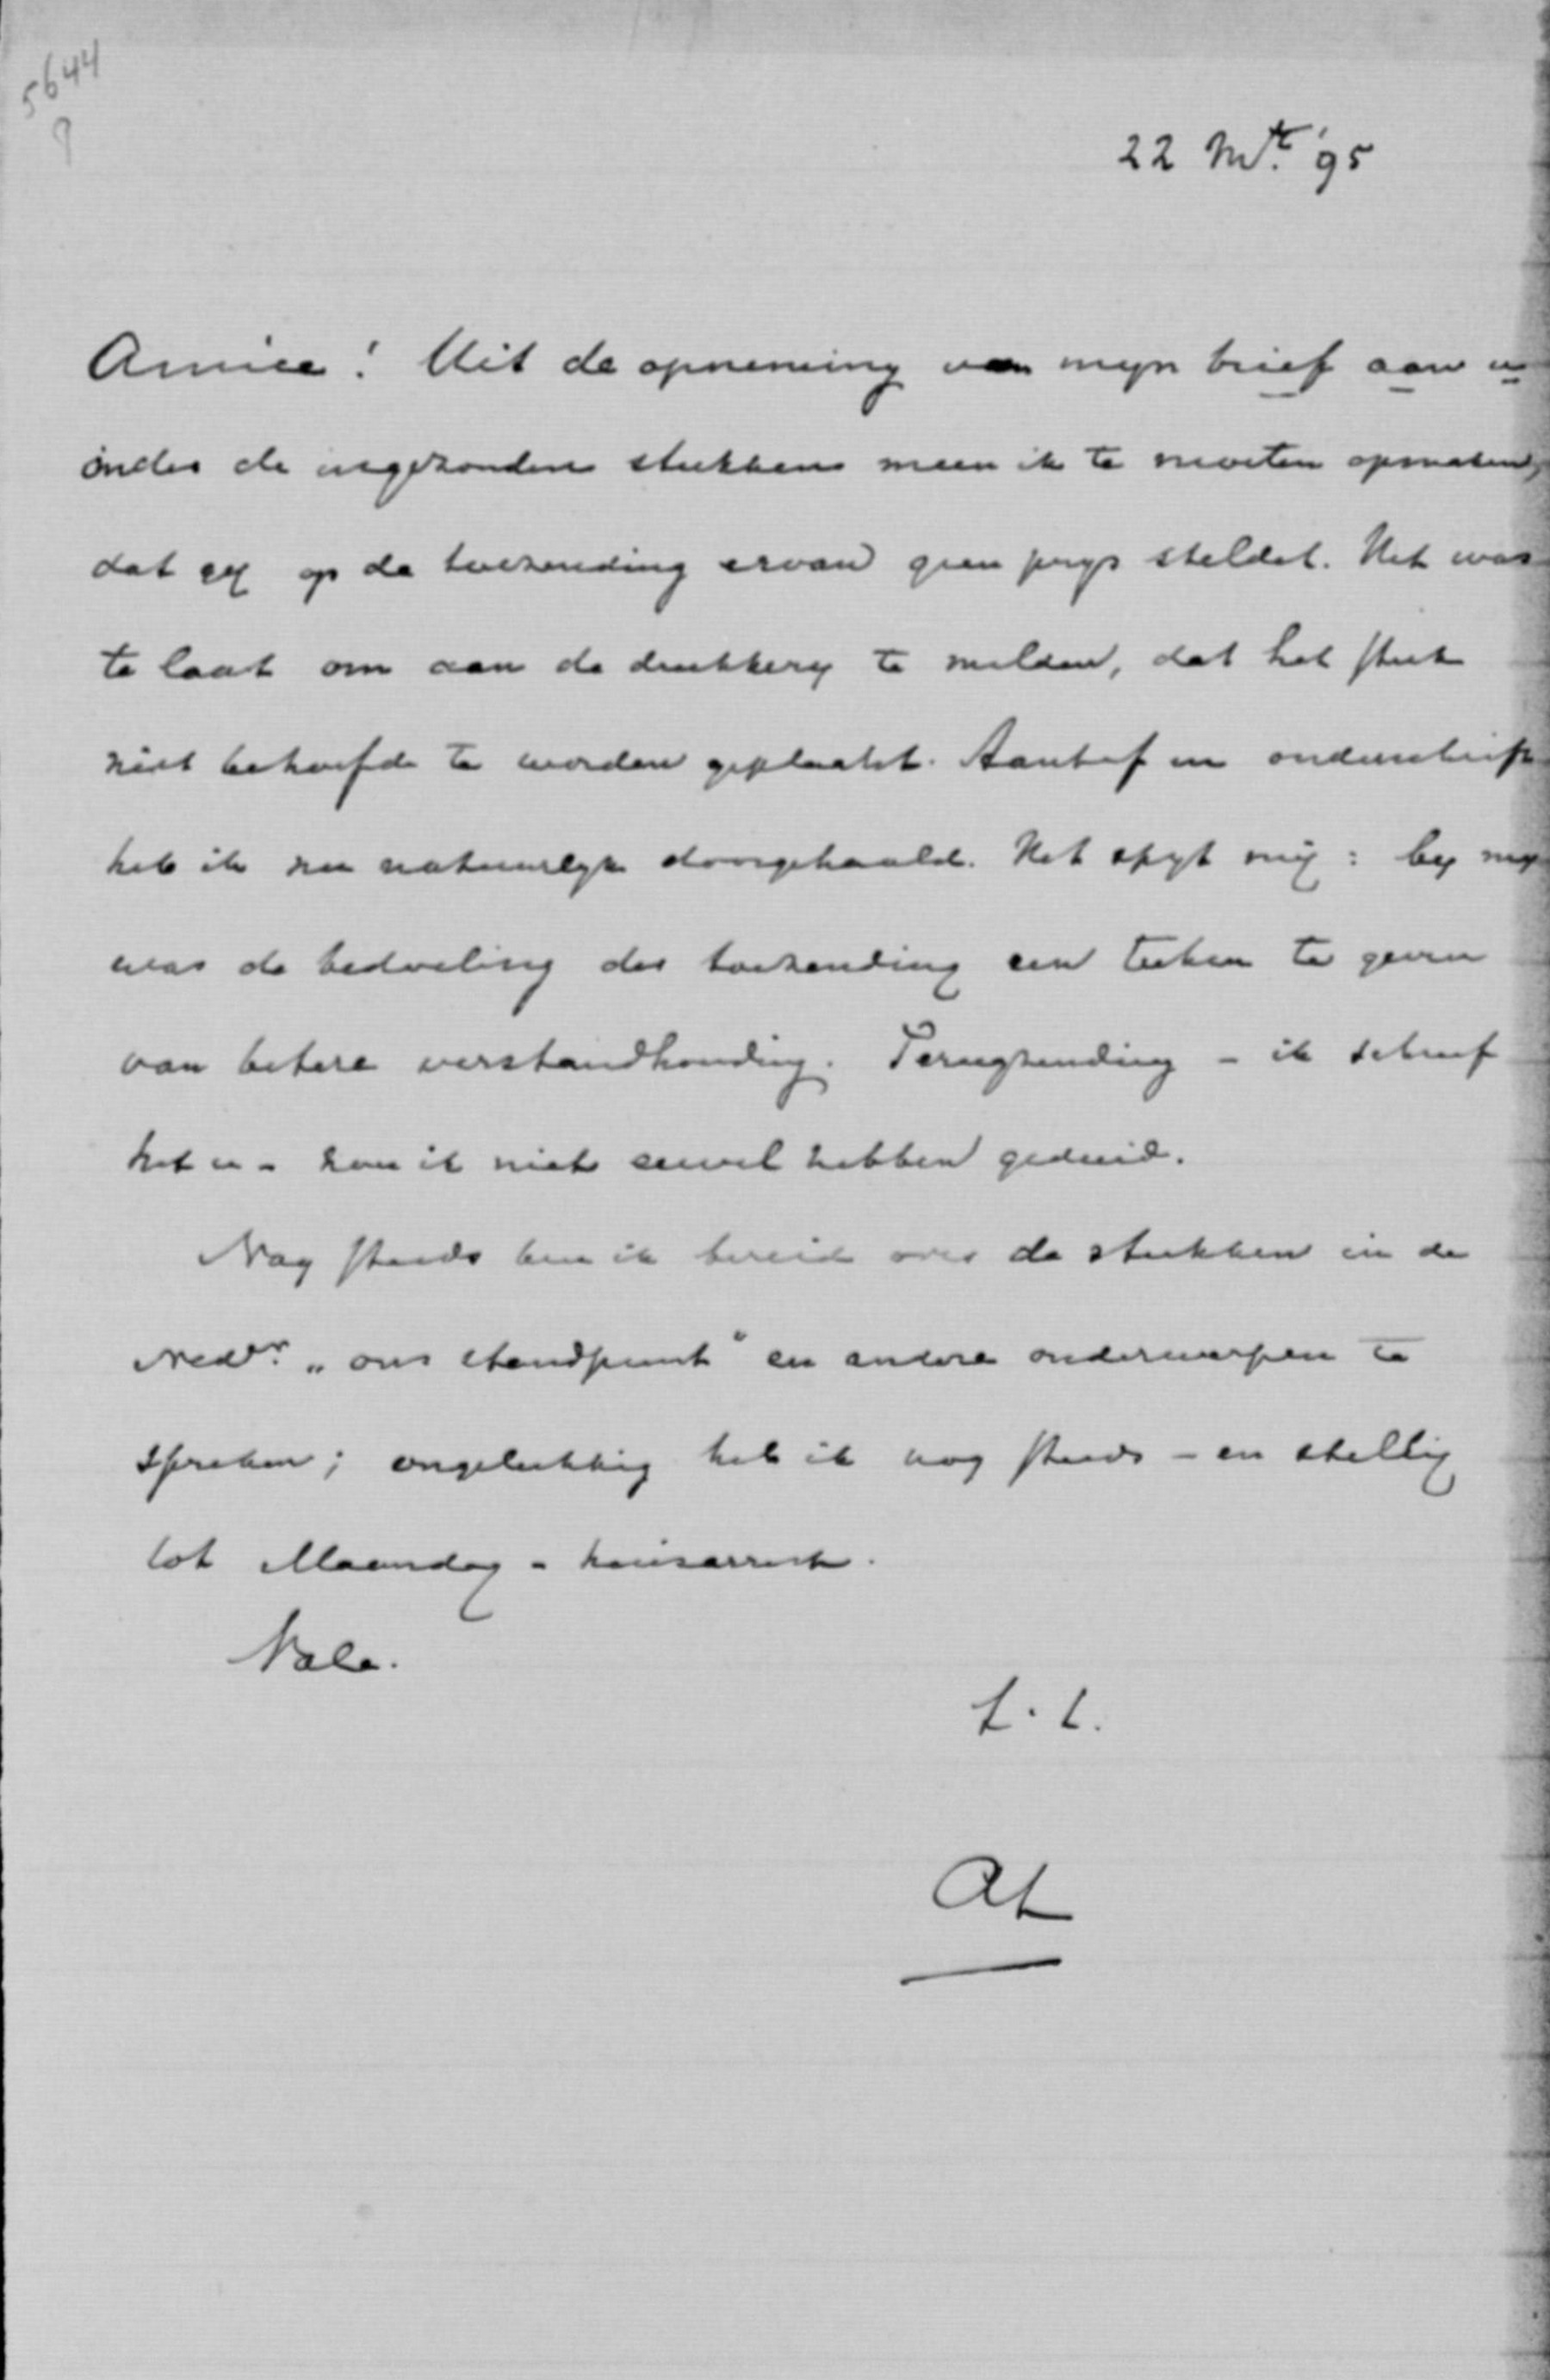 5644
22 Mrt. '95
Amice! Uit de opneming van mijn brief aan u
onder de ingezonden stukken meen ik te moeten opmaken,
dat gij op de toezending ervan geen prijs steldet. Het was
te laat om aan de drukkerij te melden, dat het stuk
niet behoefde te worden geplaatst. Aanhef en onderschrift
heb ik nu natuurlijk doorgehaald. Het spijt mij: bij mij
was de bedoeling der toezending een teeken te geven
van betere verstandhouding. Terugzending - ik schreef
het u - zou ik niet euvel hebben geduid.
Nog steeds ben ik bereid over de stukken in de
Nedr. „ons standpunt" en andere onderwerpen te
spreken; ongelukkig heb ik nog steeds - en stellig
tot Maandag - huisarrest.
Vale.
t.t.
AL